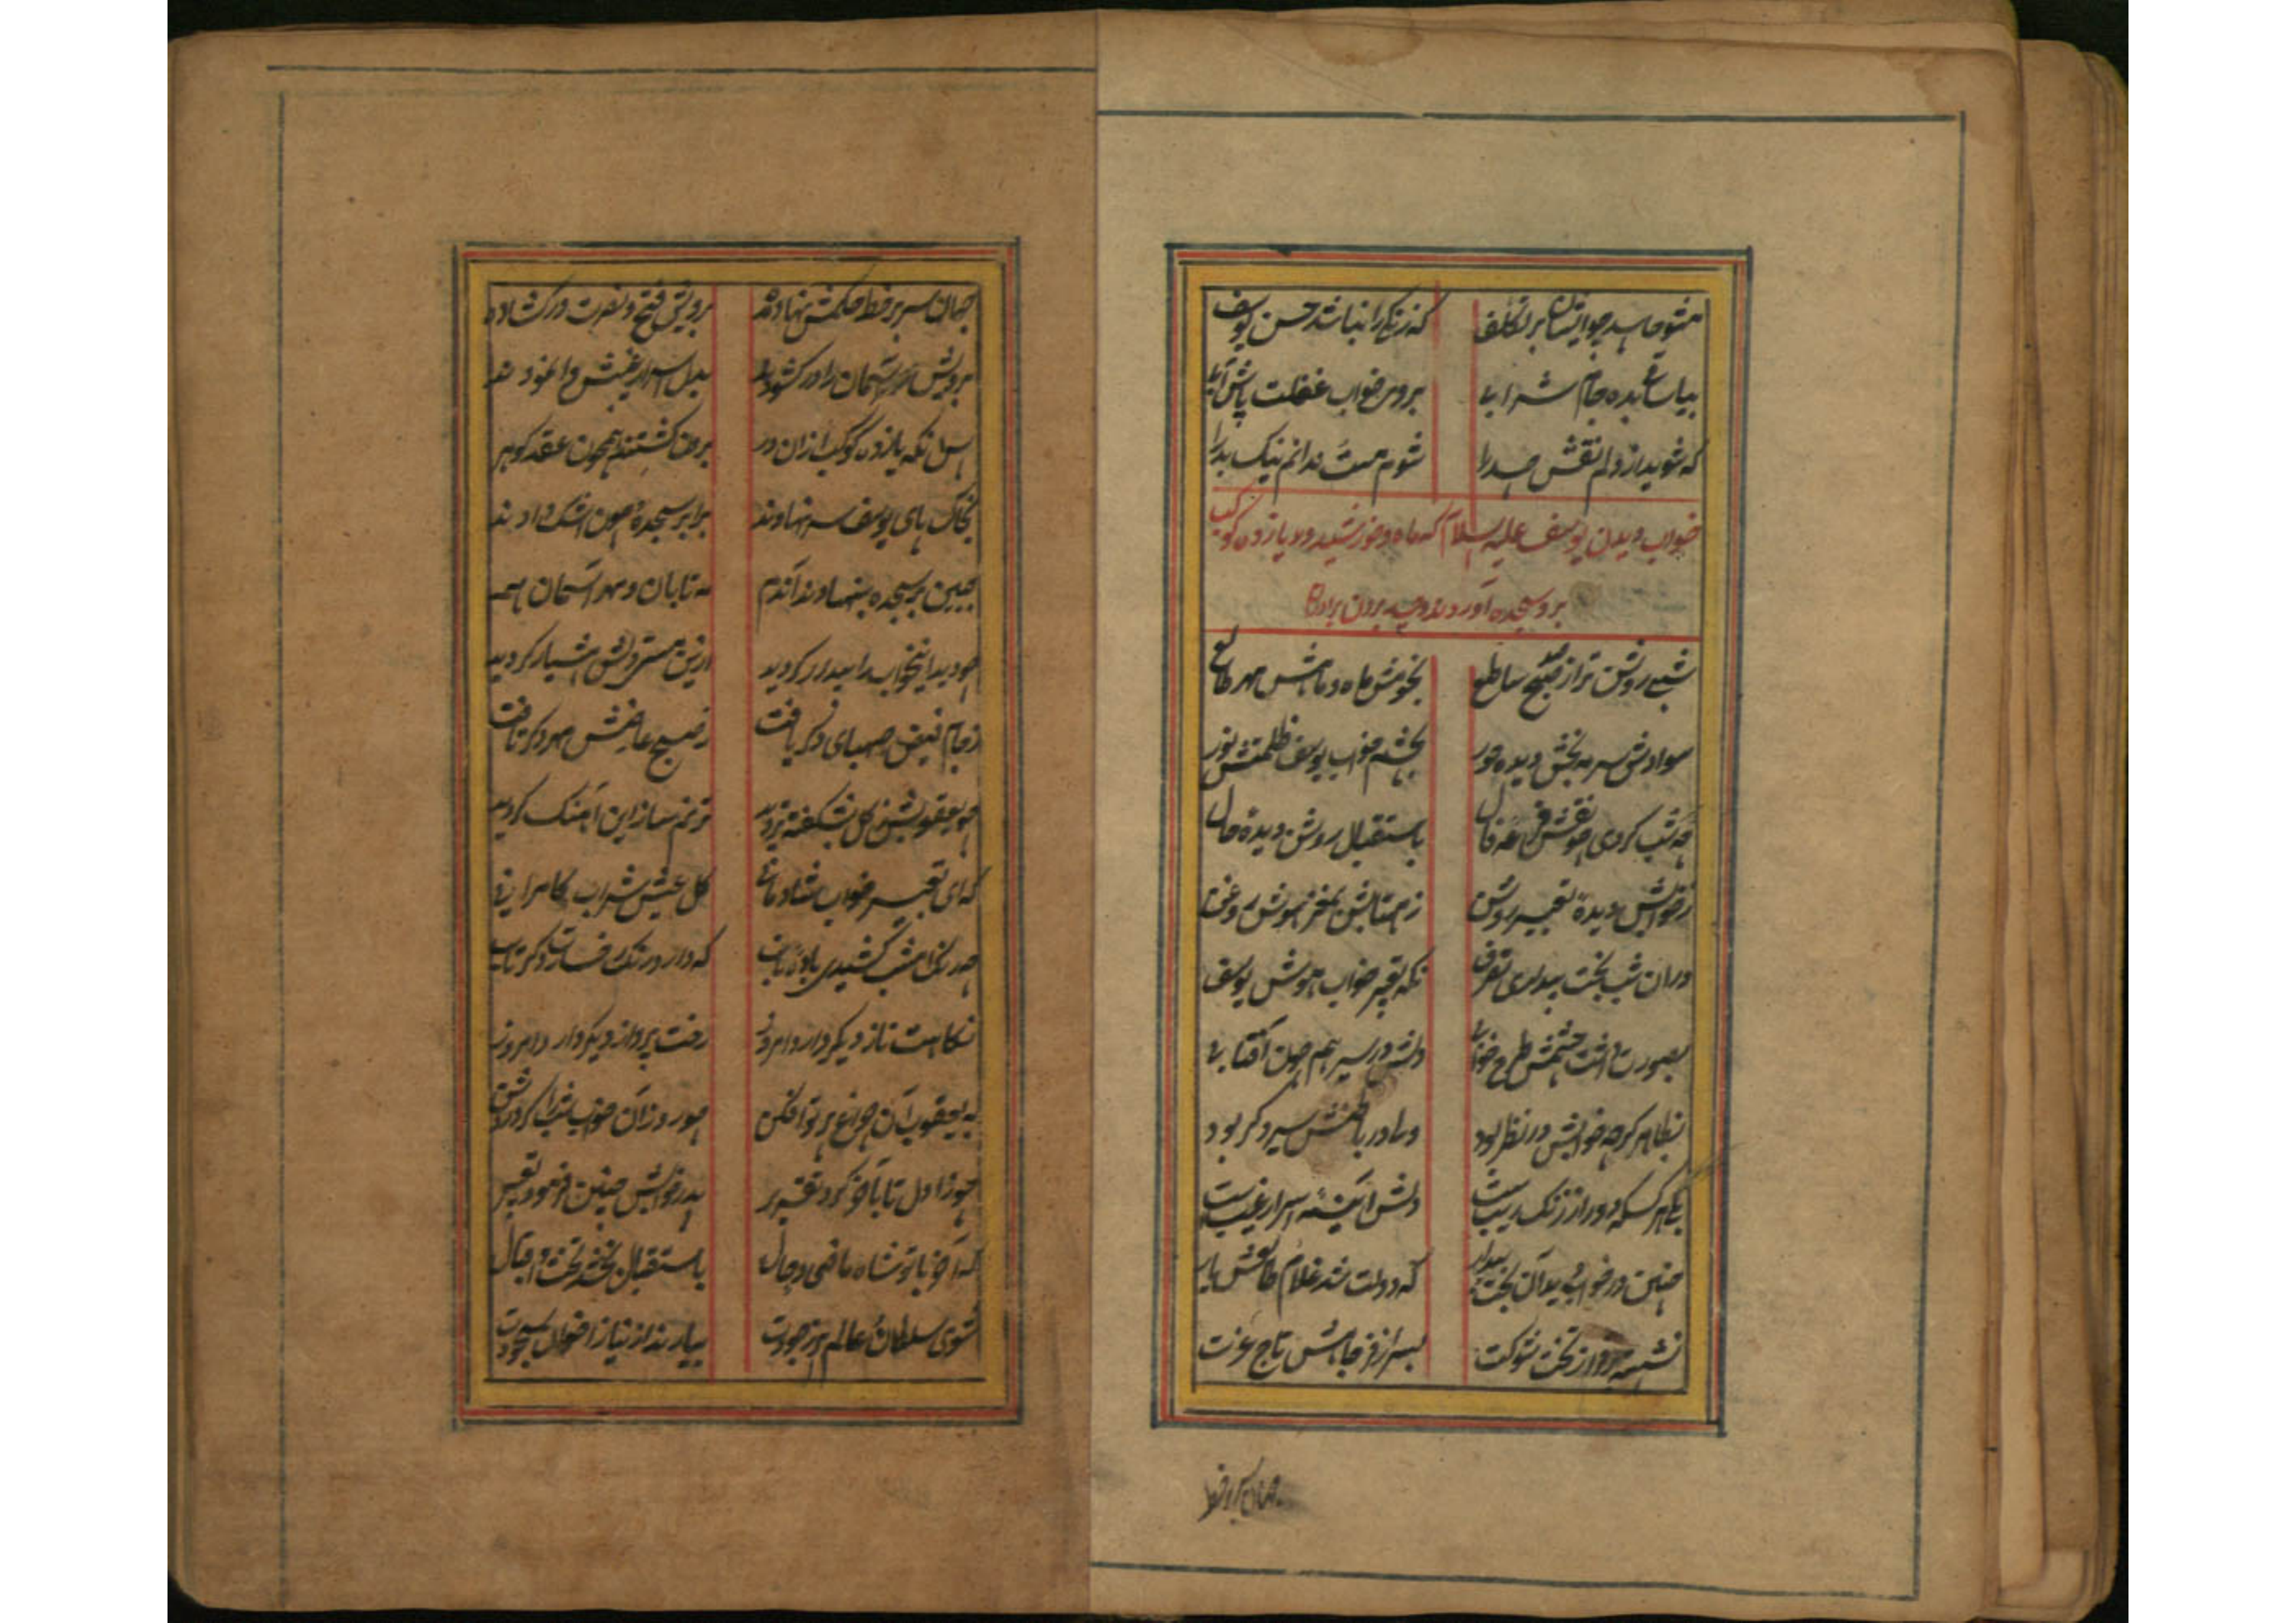 مشو حاسد چو ایشان بر تکلف که زنگی را نباشد حسن یوسف
بیا ساقی بده جام شرابی بروی خواب غفلت پاش آبی
که شوید از دلم نقش حسد را شوم مست ندانم نیک بد را
خواب دیدن یوسف علیه السلام که ماه و خورشید و یازده کوکب
برو سجده آوردند و حسد بردن برادران
شبی روشن تر از صبح ساطع بخوبیش ماه و ماهش مهر طالع
سوادش سرمه بخش دیده حور بچشم خواب یوسف ظلمتش نور
چه شب کردی چو نقش قرعه فال باستقبال رویش دیده حال
ز خوابش دیدهٔ تعبیر روشن ز مهتابش بمغز هوش روغن
دران شب بخت بیداری تعرف نکه خواب هوش یوسف
بصورت داشت چشمش طرح خوابی دلش در سیر هم چون آفتابی
بظاهر کرچه خوابش در نظر بود ولی در باطنش سیر دکر بود
بلی هر کسکه دور از زنک ریبست دلش آئینهٔ اسرار غیبست
چنین در خواب دید آن بخت بیدار که دولت شد غلام طالعش یار
نشسته بر فراز تخت شوکت بسر از فر جاهش تاج عزت
جهان سر بر خط
جهان سر بر خط حکمش نهاده برویش فتح و نصرت در کشاده
برویش آسمان را در کشودند بدل اسرار غیبش وا نمودند
پس آنکه یازده کوکب ازان در بر کشتند همچون عقد کوهر
بخاک پای یوسف سر نهادند برابر سجده چون اشک دادند
جبین بر سجده بنهادند آندم مه تابان و مهر آسمان هم
چو دید اینخواب را بیدار کردید ازین هشیار کردید
ز جام فیض صهبای دکر یافت ز صبح عارضش مهر دکر تافت
چو یعقوبش کل بشکفته تر دید ترنم ساز این آهنک کردید
که ای تعبیر خواب شادمانی کل عیش شراب کامرانی
چه رنک امشب کشیدی بادهٔ ناب که دارد رنک رخسارت دکر تاب
نکاهت ناز دیکر دارد امروز رخت پرواز دیکر دارد امروز
به یعقوب آن چراغ پرتو افکن چو روز آن خواب شب را کرد روشن
چو از اول تا بآخر کرد تقریر پدر خوابش چنین فرمود تعبیر
که آخر با تو شاه ماضی و حال باستقبال بخشد تخت و اقبال
شوی سلطان عالم از جودت بیارند از نیاز اخوان سجودت